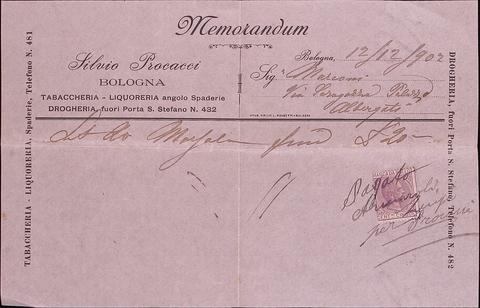 Memorandum
Silvio Procacci
BOLOGNA
TABACCHERIA - LIQUORERIA angolo Spaderie
DROGHERIA, fuori Porta S. Stefano N. 432
Bologna, 12/12/902
Sig.r Marconi
Via Saragozza Palazzo
Albergati
Marsala £ 20 -
Pagato
per
Procacci
TABACCHERIA - LIQUORERIA, Spaderie, Telefono N. 481
DROGHERIA, fuori Porta S. Stefano, Telefono N. 482